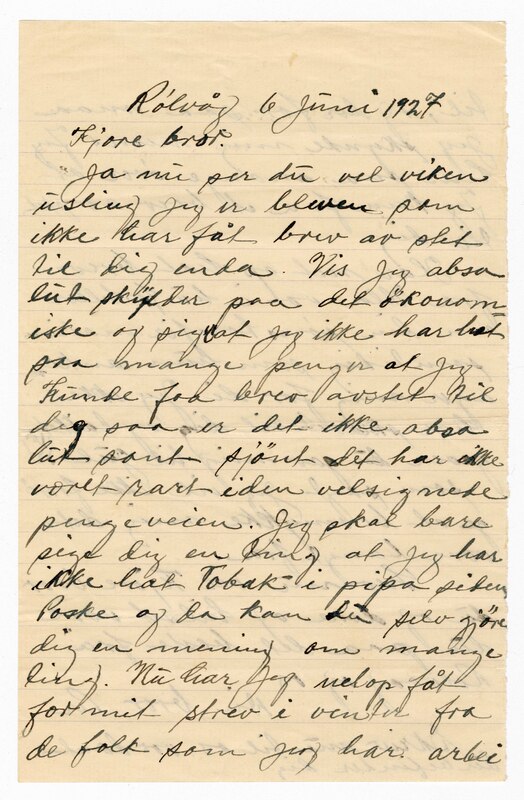 Rølvåg 6 Juni 1927
Kjære bror.
Ja nu ser du vel viken
usling jeg er bleven som
ikke har fåt brev av stét
til dig enda. Vis jeg abso
lut skylder paa det økonom
iske og sig at jeg ikke har hat
saa mange penger at jeg
kunde faa brev avstet til
dig saa er det ikke abso
lut sant sjönt det har ikke
været rart i den velsignede
pengeveien. Jeg skal bare
sige dig en ting at jeg har
ikke hat Tobak i pipa siden
Poske og da kan du selv gjöre
dig en mening om mange
ting. Nu har jeg netop fåt
for mit strev i vinter fra
de folk som jeg har arbei